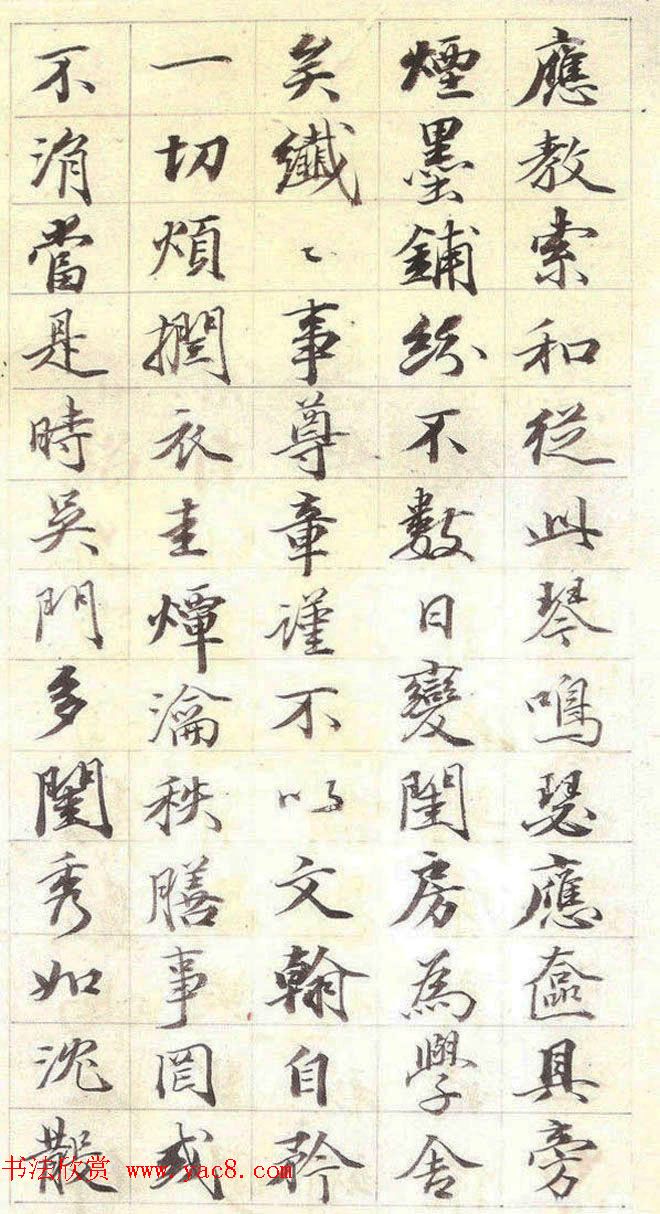 應教索和從此琴鳴瑟應奩具旁
煙墨鋪紛不數日變閨房為學舍
矣纖〻事尊章謹不以文翰自矜
一切煩撋衣圭燂瀹秩膳事罔或
不涓當是時吳門多閨秀如沈散
书法欣赏 www.yac8.com